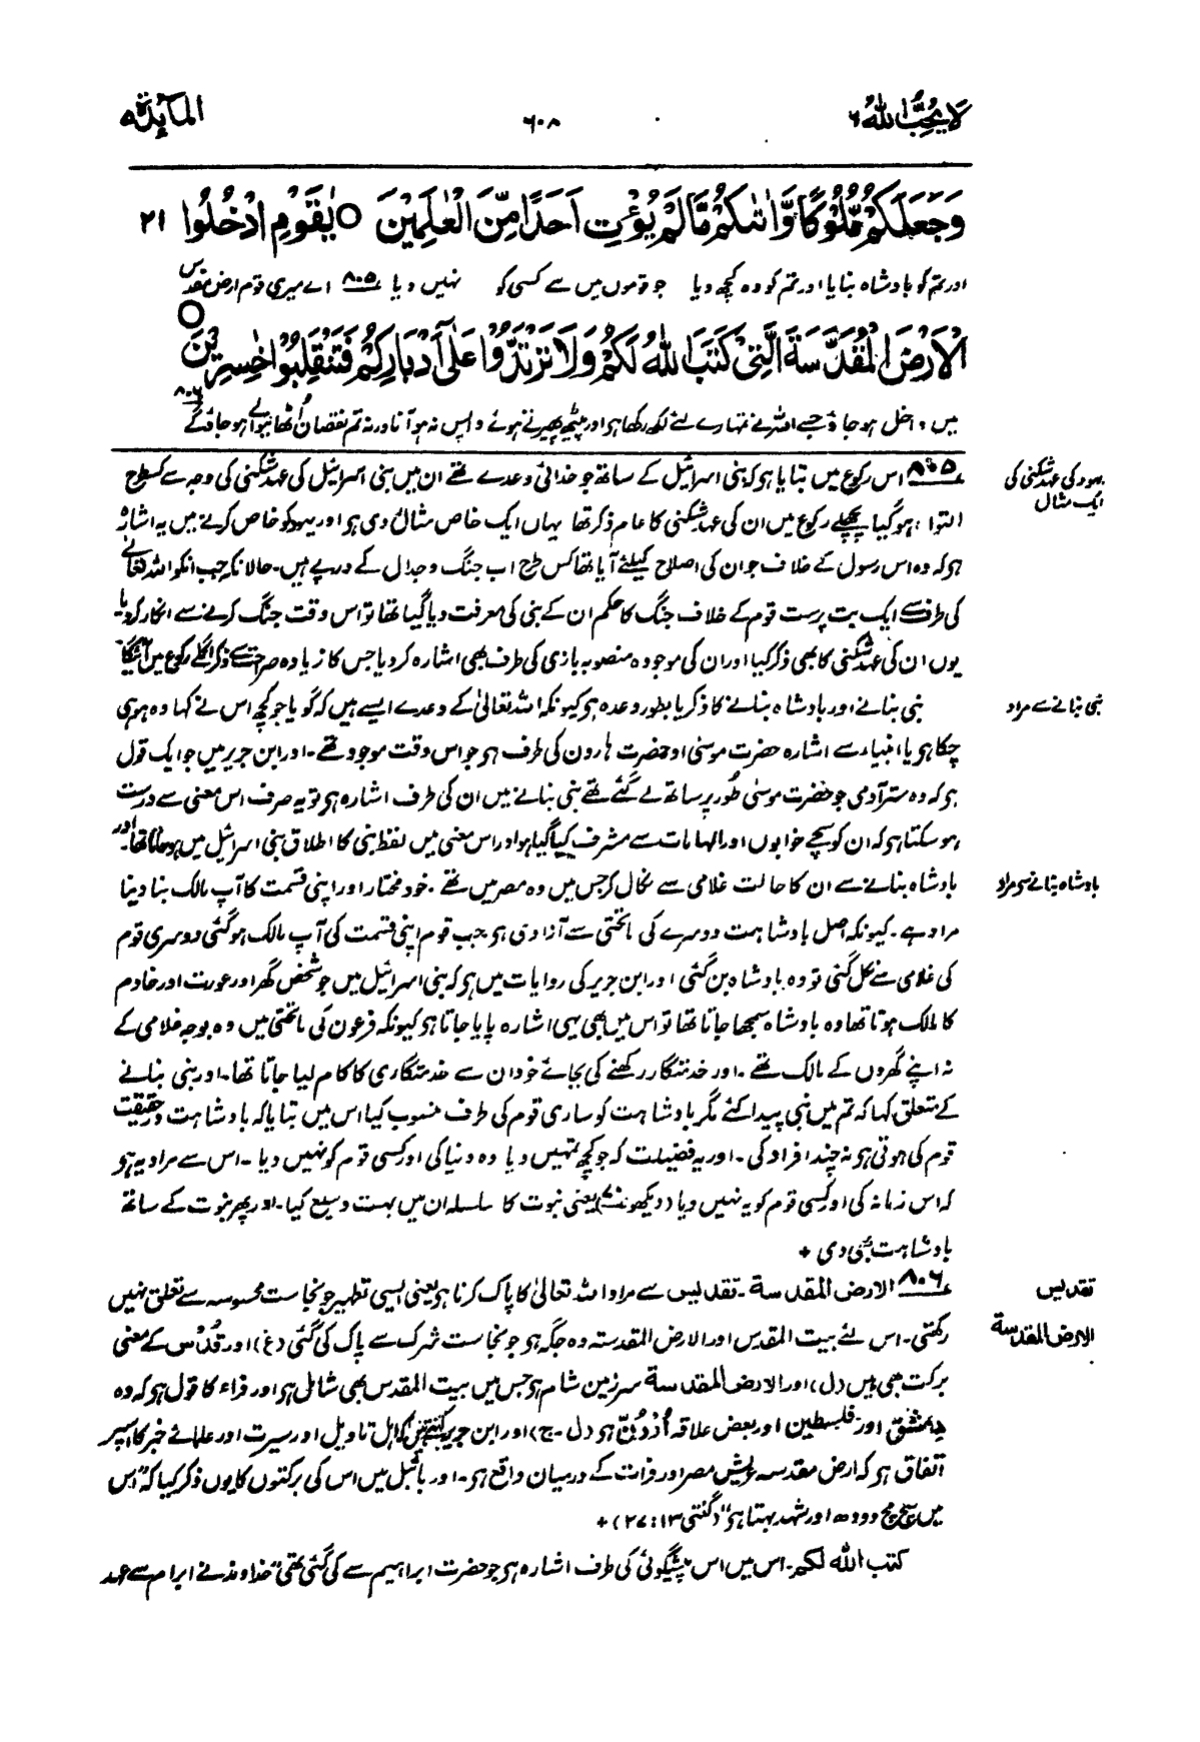 لَا يُحِبُّ اللّٰهُ ٦
٦٠٨
المآئدة ٥
وَجَعَلَكُمْ مُّلُوْكًا وَّاٰتٰىكُمْ مَّا لَمْ يُؤْتِ اَحَدًا مِّنَ الْعٰلَمِيْنَ ○ يٰقَوْمِ ادْخُلُوا ٢١
اور تم کو بادشاہ بنایا اور تم کو وہ کچھ دیا جو قوموں میں سے کسی کو نہیں دیا ٨٠٥ اے میری قوم ارض مقدس
الْاَرْضَ الْمُقَدَّسَةَ الَّتِىْ كَتَبَ اللّٰهُ لَكُمْ وَلَا تَرْتَدُّوْا عَلٰٓى اَدْبَارِكُمْ فَتَنْقَلِبُوْا خٰسِرِيْنَ ○
میں داخل ہو جاؤ جسے اللہ نے تمہارے لئے لکھ رکھا ہو اور پیٹھ پھیرتے ہوئے واپس نہ ہو آنا ورنہ تم نقصان اٹھانیوالے ہو جاؤ گے ٨٠٦
یہود کی عہد شکنی کی
ایک مثال
٨٠٥ اس رکوع میں بتایا ہو کہ بنی اسرائیل کے ساتھ جو خدائی وعدے تھے ان میں بنی اسرائیل کی عہد شکنی کی وجہ سے کسطرح
التوا ہو گیا پچھلے رکوع میں ان کی عہد شکنی کا عام ذکر تھا یہاں ایک خاص مثال دی ہو اور یہود کو خاص کرنے میں یہ اشارہ
ہو کہ وہ اس رسول کے خلاف جو ان کی اصلاح کیلئے آیا تھا کس طرح اب جنگ و جدال کے درپے ہیں۔ حالانکہ جب انکو اللہ تعالیٰ
کی طرف سے ایک بت پرست قوم کے خلاف جنگ کا حکم ان کے نبی کی معرفت دیا گیا تھا تو اس وقت جنگ کرنے سے انکار کر دیا۔
یوں ان کی عہد شکنی کا بھی ذکر کیا اور ان کی موجودہ منصوبہ بازی کی طرف بھی اشارہ کر دیا جس کا زیادہ صراحت سے ذکر اگلے رکوع میں آئیگا
نبی بنانے سے مراد
نبی بنانے اور بادشاہ بنانے کا ذکر یا بطور وعدہ ہو کیونکہ اللہ تعالیٰ کے وعدے ایسے ہیں کہ گویا جو کچھ اس نے کہا وہ ہو ہی
چکا ہو یا انبیاء سے اشارہ حضرت موسیٰ اور حضرت ہارون کی طرف ہو جو اس وقت موجود تھے۔ اور ابن جریر میں جو ایک قول
ہو کہ وہ ستر آدمی جو حضرت موسیٰ طور پر ساتھ لے گئے تھے نبی بنانے میں ان کی طرف اشارہ ہو تو یہ صرف اس معنی سے درست
ہو سکتا ہو کہ ان کو سچے خوابوں اور الہامات سے مشرف کیا گیا ہو اور اس معنی میں لفظ نبی کا اطلاق بنی اسرائیل میں ہو جاتا تھا اور
بادشاہ بنانے سے مراد
بادشاہ بنانے سے ان کا حالت غلامی سے نکال کر جس میں وہ مصر میں تھے۔ خود مختار اور اپنی قسمت کا آپ مالک بنا دینا
مراد ہے۔ کیونکہ اصل بادشاہت دوسرے کی ماتحتی سے آزادی ہو جب قوم اپنی قسمت کی آپ مالک ہو گئی دوسری قوم
کی غلامی سے نکل گئی تو وہ بادشاہ بن گئی اور ابن جریر کی روایات میں ہو کہ بنی اسرائیل میں جو شخص گھر اور عورت اور خادم
کا مالک ہوتا تھا وہ بادشاہ سمجھا جاتا تھا تو اس میں بھی یہی اشارہ پایا جاتا ہو کیونکہ فرعون کی ماتحتی میں وہ بوجہ غلامی کے
نہ اپنے گھروں کے مالک تھے۔ اور خدمتگار رکھنے کی بجائے خود ان سے خدمتگاری کا کام لیا جاتا تھا۔ اور نبی بنانے
کے متعلق کہا کہ تم میں نبی پیدا کئے مگر بادشاہت کو ساری قوم کی طرف منسوب کیا اس میں بتایا کہ بادشاہت در حقیقت
قوم کی ہوتی ہو نہ چند افراد کی۔ اور یہ فضیلت کہ جو کچھ تمہیں دیا وہ دنیا کی اور کسی قوم کو نہیں دیا۔ اس سے مراد یہ ہو
کہ اس زمانہ کی اور کسی قوم کو یہ نہیں دیا (دیکھو) یعنی نبوت کا سلسلہ ان میں بہت وسیع کیا۔ اور پھر نبوت کے ساتھ
بادشاہت بھی دی +
تقدیس
٨٠٦ الارض المقدسة۔ تقدیس سے مراد اللہ تعالیٰ کا پاک کرنا ہو یعنی ایسی تطہیر جو نجاست محسوسہ سے تعلق نہیں
الارض المقدسة
رکھتی۔ اس لئے بیت المقدس اور الارض المقدسة وہ جگہ ہو جو نجاست شرک سے پاک کی گئی (غ) اور قُدُس کے معنی
برکت بھی ہیں (ل) اور الارض المقدسة سرزمین شام ہو جس میں بیت المقدس بھی شامل ہو اور فراء کا قول ہو کہ وہ
دمشق اور فلسطین اور بعض علاقہ اُرْدُنّ ہو (ل۔ ج) اور ابن جریر کہتے ہیں کہ اہل تاویل اور سیرت اور علمائے خبر کا اسپر
اتفاق ہو کہ ارض مقدسہ عریش مصر اور فرات کے درمیان واقع ہو۔ اور بائبل میں اس کی برکتوں کا یوں ذکر کیا کہ "اس
میں سچ مچ دودھ اور شہد بہتا ہو" (گنتی ١٣: ٢٧) +
کتب اللہ لکم۔ اس میں اس پیشگوئی کی طرف اشارہ ہو جو حضرت ابراہیم سے کی گئی تھی "خداوند نے ابرام سے عہد